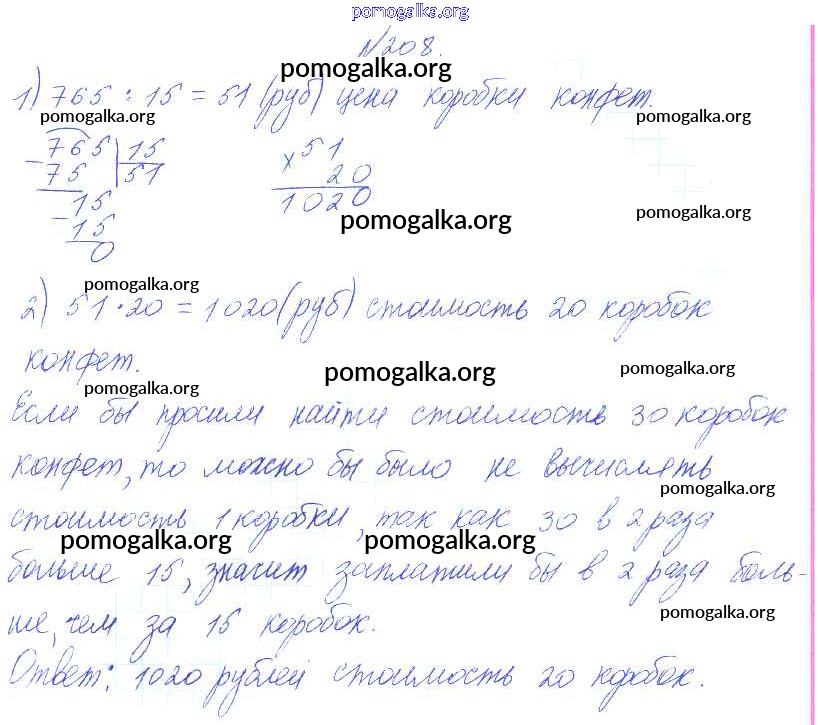 pomogalka.org
№208.
pomogalka.org
1) 765 : 15 = 51 (руб) цена коробки конфет.
pomogalka.org pomogalka.org
765 | 15 × 51
- 75 | 51 20
15 1020
- 15 pomogalka.org pomogalka.org
0
pomogalka.org
2) 51 · 20 = 1020 (руб) стоимость 20 коробок
конфет.
pomogalka.org pomogalka.org pomogalka.org
Если бы просили найти стоимость 30 коробок
конфет, то можно бы было не вычислять
pomogalka.org
стоимость 1 коробки, так как 30 в 2 раза
pomogalka.org pomogalka.org
больше 15, значит заплатили бы в 2 раза боль-
ше, чем за 15 коробок.
pomogalka.org
Ответ: 1020 рублей стоимость 20 коробок.